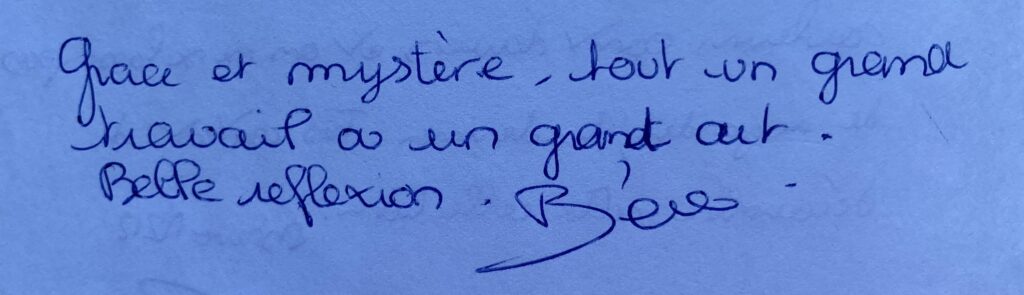 Grace et mystère, tout un grand
travail a un grand art.
Belle reflexion.